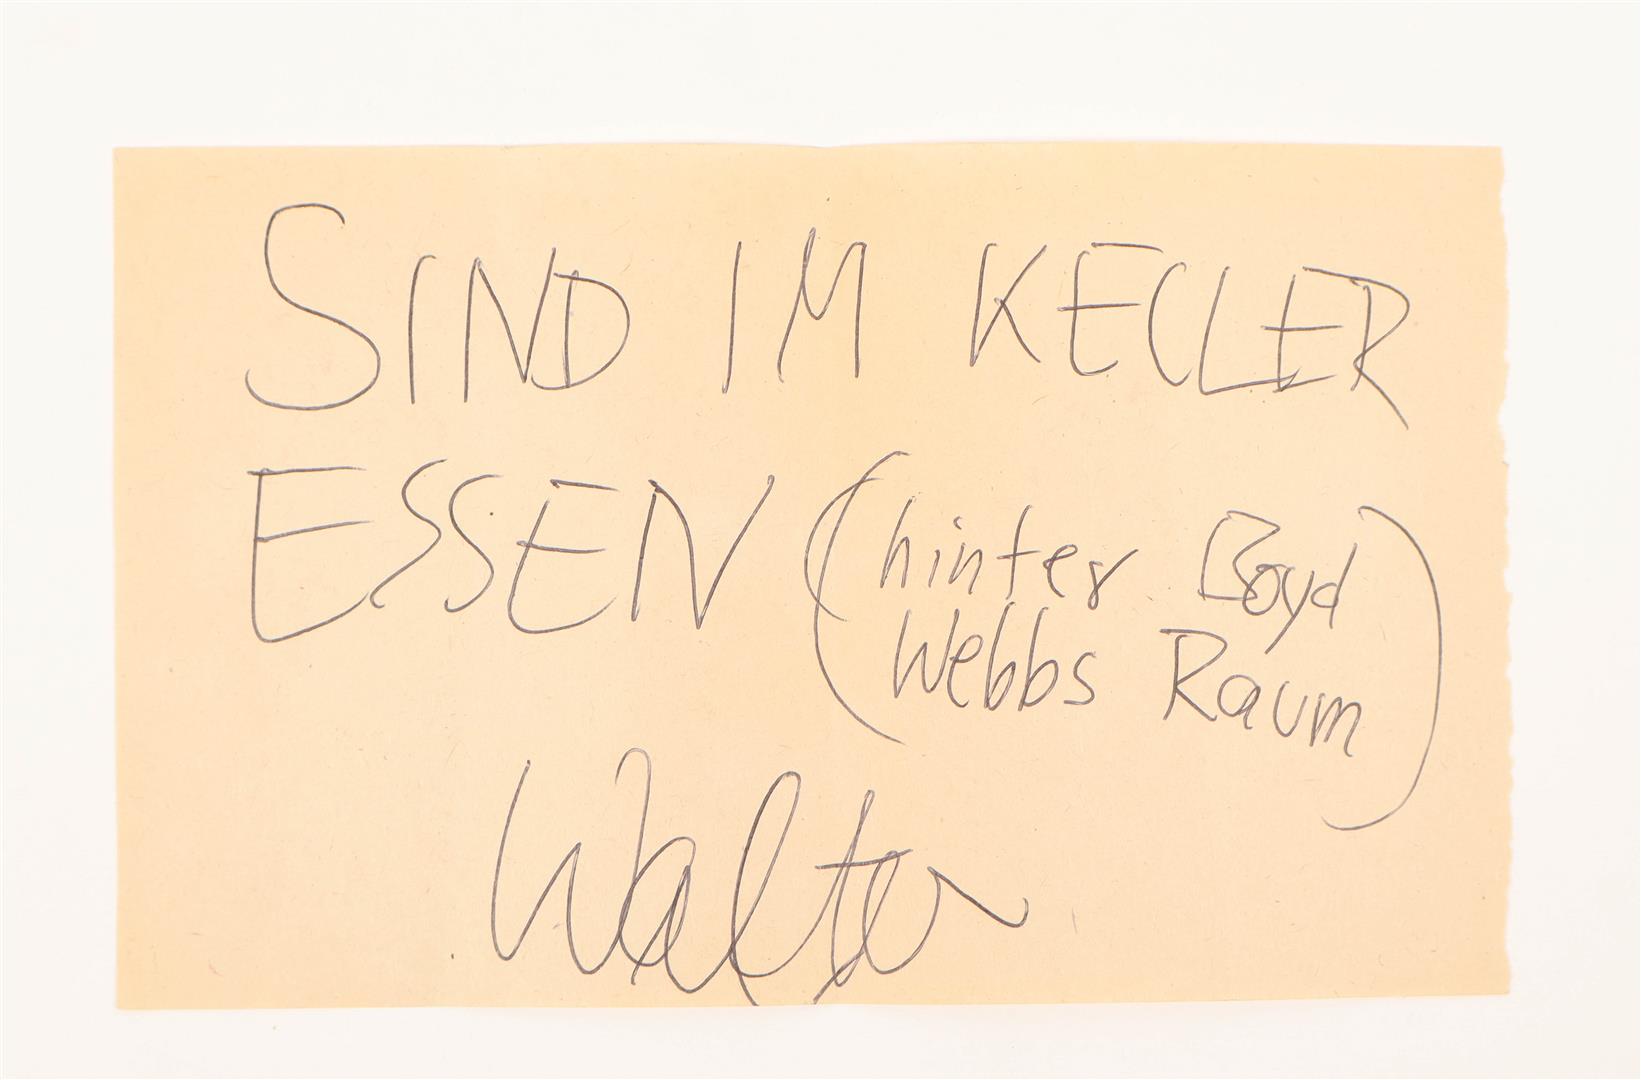 SIND IM KELLER
ESSEN (hinter Boyd
Webbs Raum)
Walter